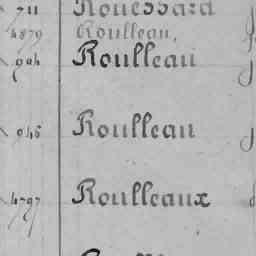 711 Rouessard
4879 Roulleau,
994 Roulleau
945 Roulleau
4797 Roulleaux